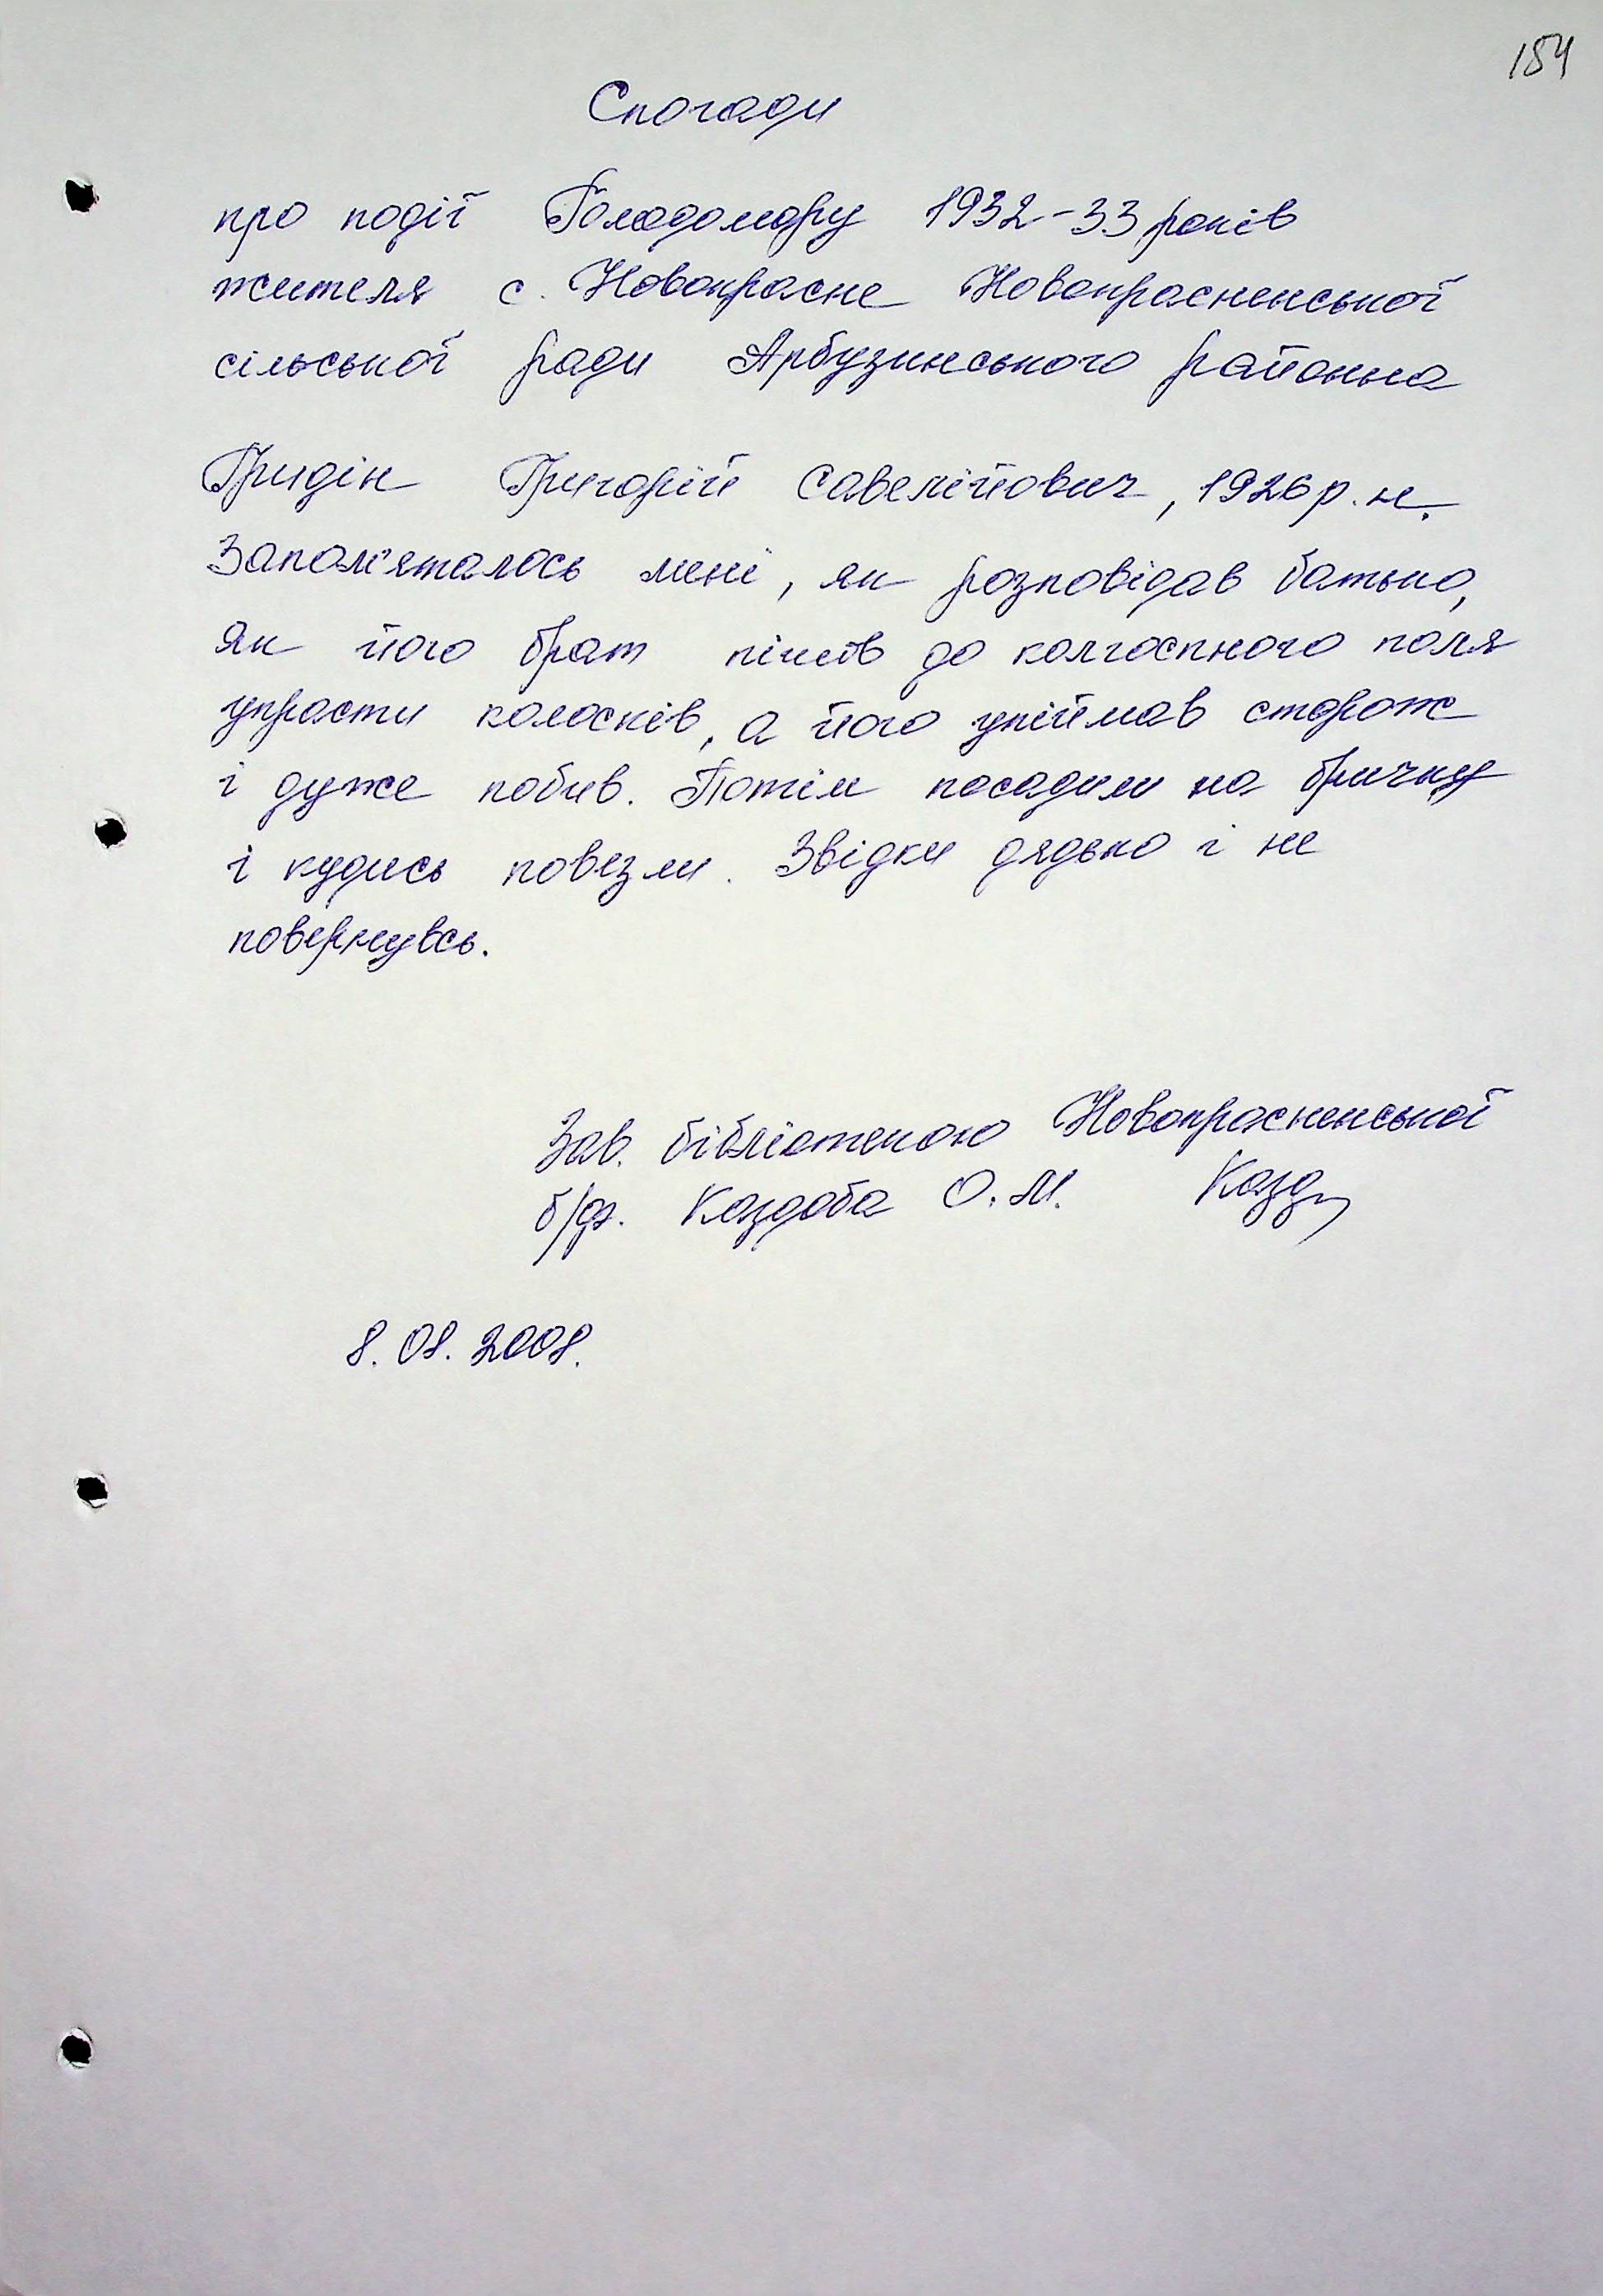 184
Спогади
про події Голодомору 1932-33 років
жителя с. Новокрасне Новокрасненської
сільської ради Арбузинського району
Гридін Григорій Савелійович, 1926 р.н.
Запам'яталось мені, як розповідав батько,
як його брат пішов до колгоспного поля
украсти колосків, а його упіймав сторож
і дуже побив. Потім посадили на бричку
і кудись повезли. Звідки дядько і не
повернувсь.
Зав. бібліотекою Новокрасненської
б/ф. Коздоба О.М.
8.08.2008.